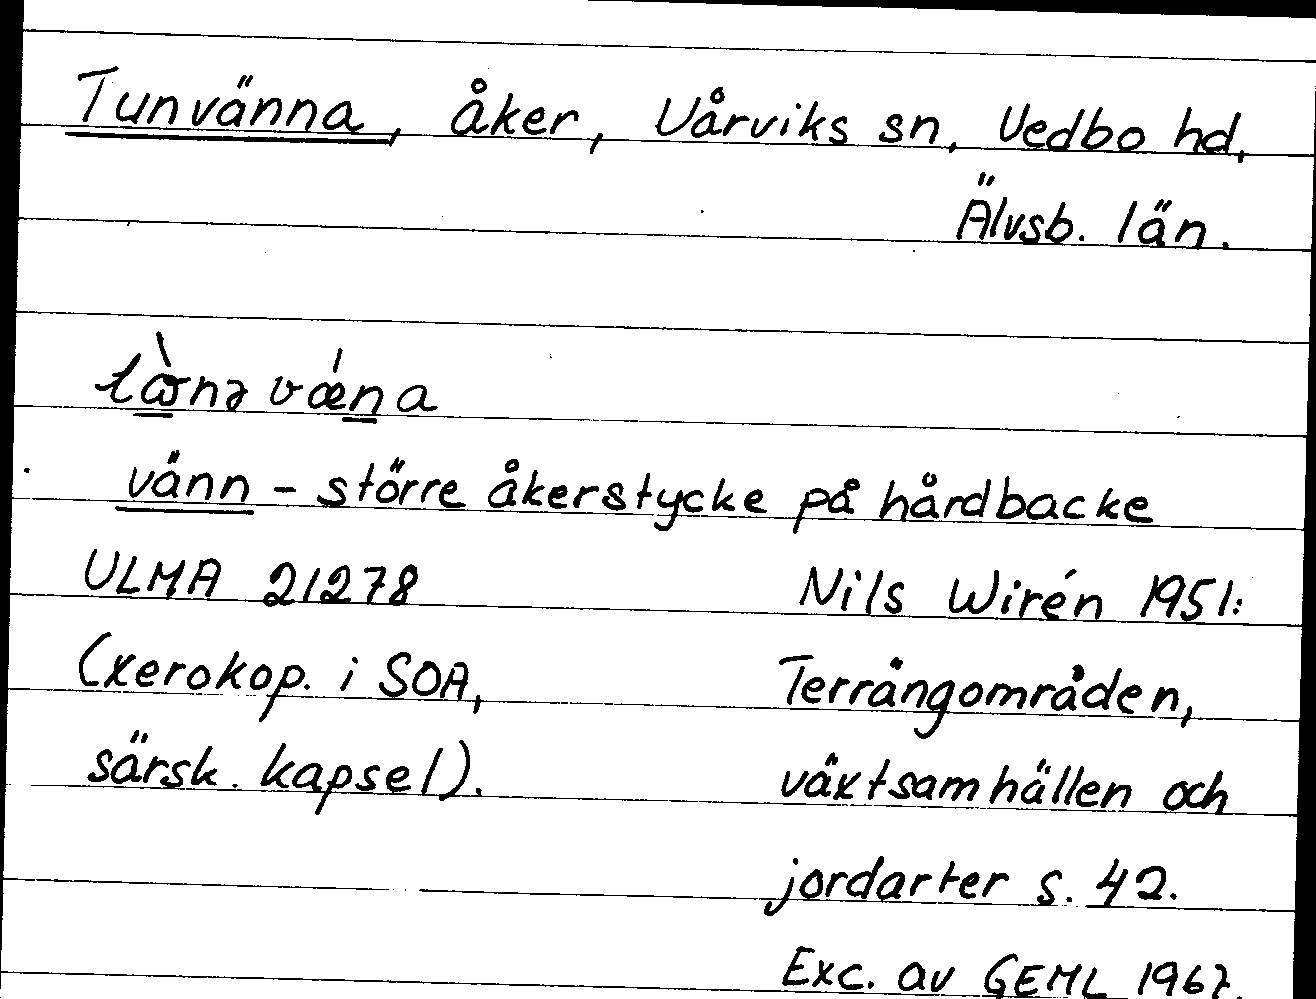 Tunvänna, åker, Vårviks sn, Vedbo hd,
Älvsb. län.
vänn - större åkerstycke på hårdbacke
ULMA 21278
(xerokop. i SOA,
särsk. kapsel).
Nils Wirén 1951:
Terrängområden,
växtsamhällen och
jordarter s. 42.
Exc. av GEML 1967.